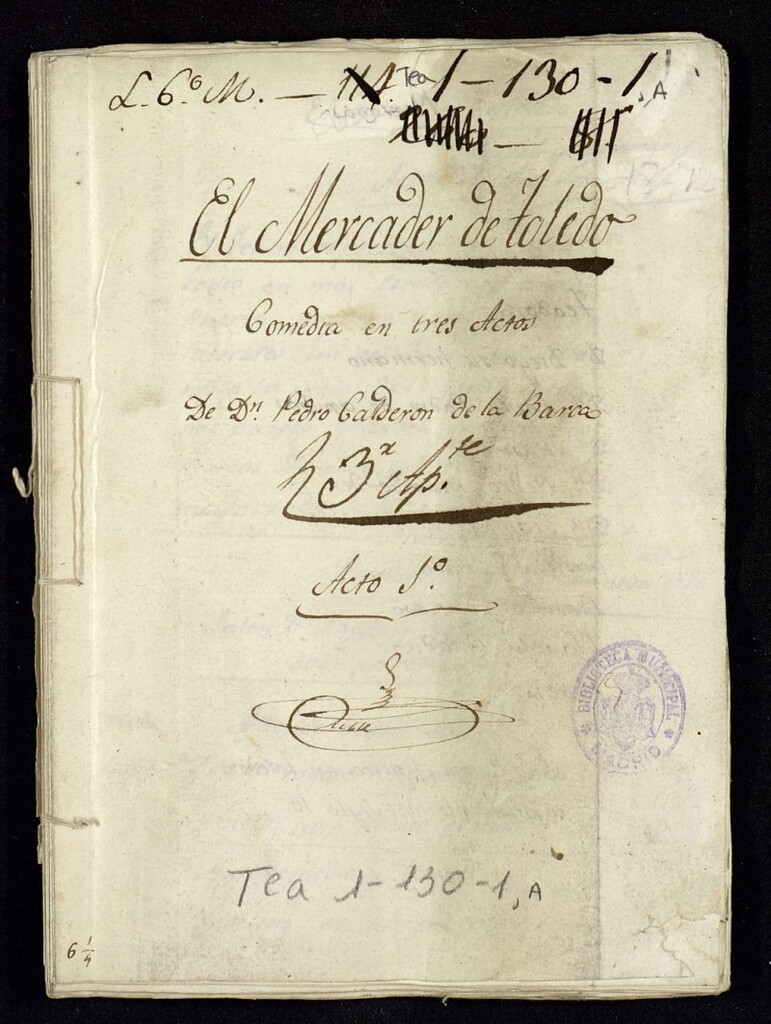 L. 6º M. — Tea 1-130-1, A
El Mercader de Toledo
Comedia en tres Actos
De Dn. Pedro Calderon de la Barca
3ª Ap.te
Acto 1º
BIBLIOTECA MUNICIPAL
MADRID
Tea 1-130-1, A
6 1/4